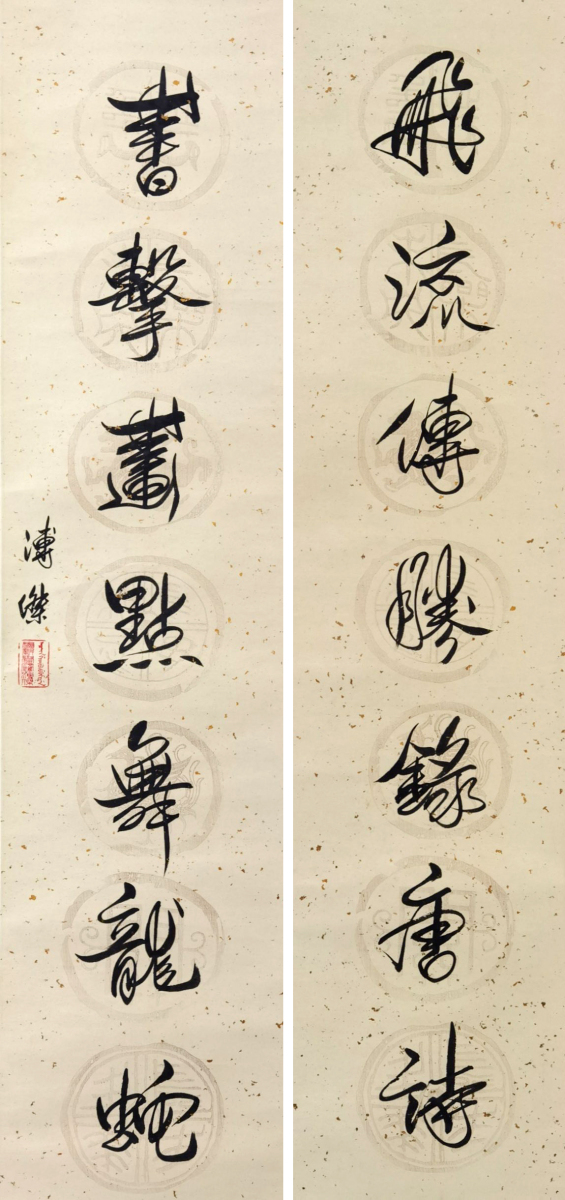 飛流傳勝錄唐詩
書擊畫點舞龍蛇
溥傑